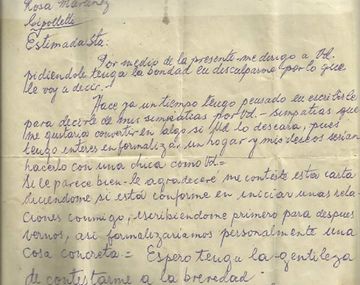 Rosa Martinez
Cipolletti
Estimada Sta:
Por medio de la presente me dirigo a Vd.
pidiendole tenga la bondad en disculparme por lo que
le voy a decir.-
Hace ya un tiempo tengo pensado en escribirle
para decirle de mis simpatias por Vd.- simpatias que
me gustaria convertir en algo si Ud lo deseara, pues
tengo interes en formalizar un hogar y mis deseos serian
hacerlo con una chica como Vd=
Si le parece bien-le agradeceré me conteste esta carta
diciendome si está conforme en iniciar unas rela
ciones conmigo, escribiendome primero para despues
vernos, asi formalizariamos personalmente una
cosa concreta= Espero tenga la gentileza
de contestarme a la brevedad.-